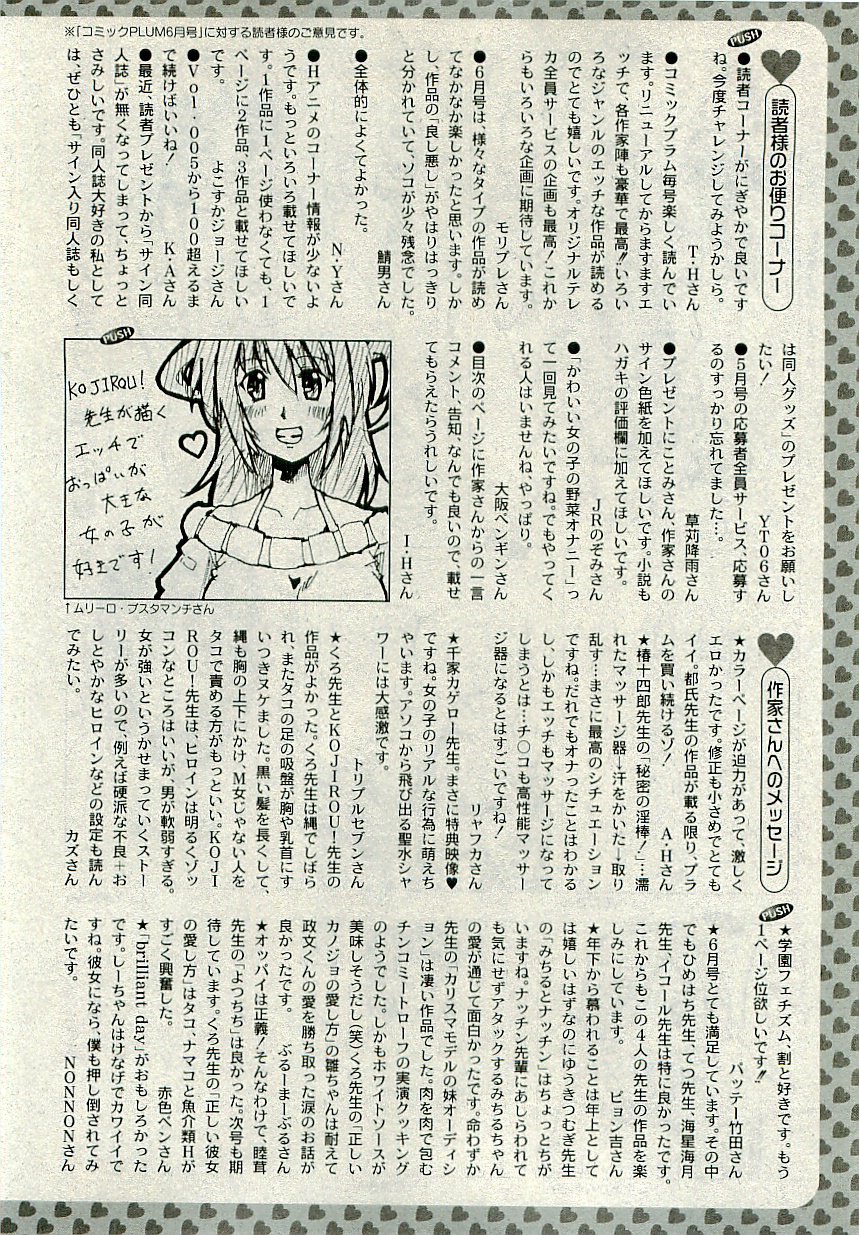 ※「コミックPLUM6月号」に対する読者様のご意見です。
PUSH
読者様のお便りコーナー
●読者コーナーがにぎやかで良いです
ね。今度チャレンジしてみようかしら。
T・Hさん
●コミックプラム毎号楽しく読んでい
ます。リニューアルしてからますますエ
ッチで、各作家陣も豪華で最高!!いろい
ろなジャンルのエッチな作品が読める
のでとても嬉しいです。オリジナルテレ
カ全員サービスの企画も最高!これか
らもいろいろな企画に期待しています。
モリブレさん
●6月号は、様々なタイプの作品が読め
てなかなか楽しかったと思います。しか
し、作品の「良し悪し」がやはりはっきり
と分かれていて、ソコが少々残念でした。
鯖男さん
●全体的によくてよかった。
N・Yさん
●Hアニメのコーナー情報が少ないよ
うです。もっといろいろ載せてほしいで
す。1作品に1ページ使わなくても、1
ページに2作品、3作品と載せてほしい
です。　よこすかジョージさん
●Vol・005から100超えるま
で続けばいいね!　K・Aさん
●最近、読者プレゼントから「サイン同
人誌」が無くなってしまって、ちょっと
さみしいです。同人誌大好きの私として
は、ぜひとも「サイン入り同人誌もしく
は同人グッズ」のプレゼントをお願いし
たい!　YT06さん
●5月号の応募者全員サービス、応募す
るのすっかり忘れてました…。
草苅降雨さん
●プレゼントにことみさん、作家さんの
サイン色紙を加えてほしいです。小説も
ハガキの評価欄に加えてほしいです。
JRのぞみさん
●「かわいい女の子の野菜オナニー」っ
て一回見てみたいですね。でもやってく
れる人はいませんね、やっぱり。
大阪ペンギンさん
●目次のページに作家さんからの一言
コメント、告知、なんでも良いので、載せ
てもらえたらうれしいです。
I・Hさん
PUSH
KOJIROU!
先生が描く
エッチで
おっぱいが
大きな
女の子が
好きです!
↑ムリーロ・ブスタマンチさん
作家さんへのメッセージ
★カラーページが迫力があって、激しく
エロかったです。修正も小さめでとても
イイ。都氏先生の作品が載る限り、プラ
ムを買い続けるゾ!　A・Hさん
★椿十四郎先生の「秘密の淫棒!」…濡
れたマッサージ器→汗をかいた→取り
乱す…まさに最高のシチュエーション
ですね。だれでもオナったことはわかる
し、しかもエッチもマッサージになって
しまうとは…チ○コも高性能マッサー
ジ器になるとはすごいですね!
リャフカさん
★千家カゲロー先生。まさに特典映像♥
ですね。女の子のリアルな行為に萌えち
ゃいます。アソコから飛び出る聖水シャ
ワーには大感激です。
トリプルセブンさん
★くろ先生とKOJIROU!先生の
作品がよかった。くろ先生は縄でしばら
れ、またタコの足の吸盤が胸や乳首にす
いつきヌケました。黒い髪を長くして、
縄も胸の上下にかけ、M女じゃない人を
タコで責める方がもっといい。KOJI
ROU!先生は、ヒロインは明るくゾッ
コンなところはいいが、男が軟弱すぎる。
女が強いというかせまっていくストー
リーが多いので、例えば硬派な不良+お
しとやかなヒロインなどの設定も読ん
でみたい。　カズさん
PUSH
★学園フェチズム、割と好きです。もう
1ページ位欲しいです!!
バッテー竹田さん
★6月号とても満足しています。その中
でもひめはち先生、てつ先生、海星海月
先生、イコール先生は特に良かったです。
これからもこの4人の先生の作品を楽
しみにしています。　ピョン吉さん
★年下から慕われることは年上として
は嬉しいはずなのにゆうきつむぎ先生
の「みちるとナッチン」はちょっとちが
いますね。ナッチン先輩にあしらわれて
も気にせずアタックするみちるちゃん
の愛が通じて面白かったです。命わずか
先生の「カリスマモデルの妹オーディシ
ョン」は凄い作品でした。肉を肉で包む
チンコミートローフの実演クッキング
のようでした。しかもホワイトソースが
美味しそうだし(笑)くろ先生の「正しい
カノジョの愛し方」の雛ちゃんは耐えて
政文くんの愛を勝ち取った涙のお話が
良かったです。　ぶるーまーぶるさん
★オッパイは正義!そんなわけで、睦茸
先生の「よつちち」は良かった。次号も期
待しています。くろ先生の「正しい彼女
の愛し方」はタコ、ナマコと魚介類Hが
すごく興奮した。　赤色ペンさん
★「brilliant day」がおもしろかった
です。しーちゃんはけなげでカワイイで
すね。彼女になら、僕も押し倒されてみ
たいです。　NONNONさん